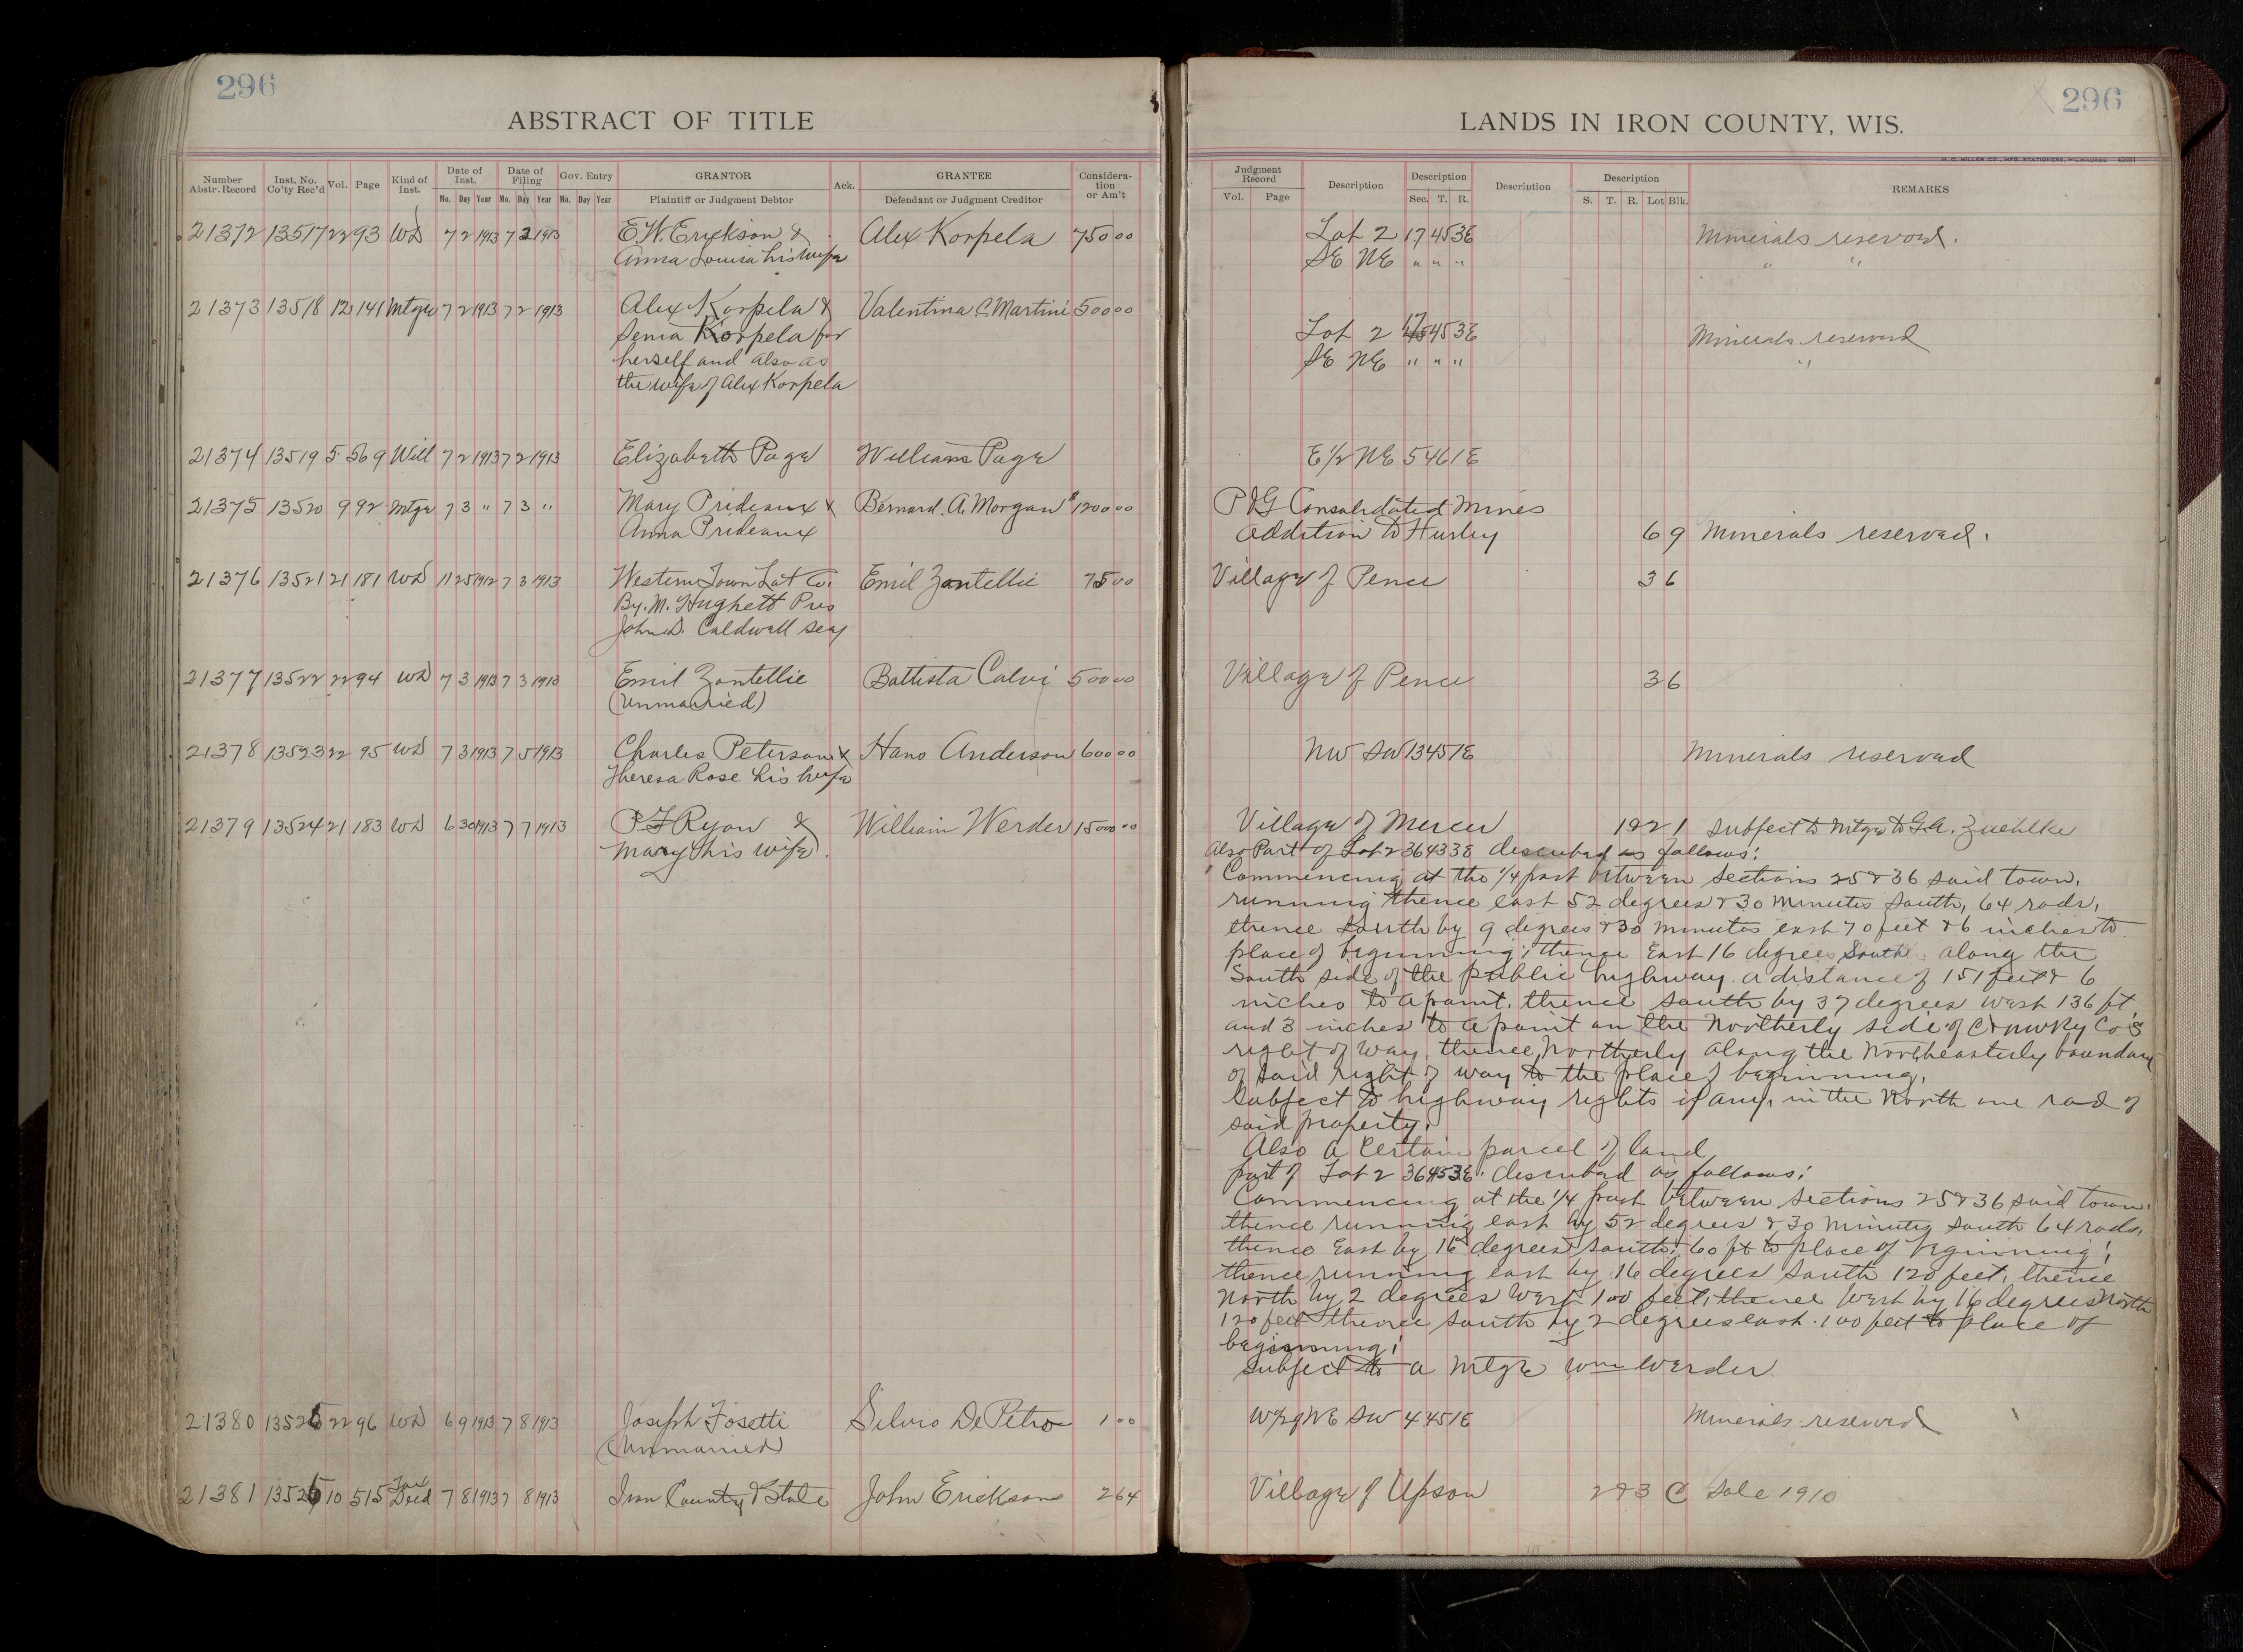 296
ABSTRACT OF TITLE
Number Abstr. Record Inst. No. Co'ty Rec'd Vol. Page Kind of Inst. Date of Inst. Date of Filing Gov. Entry GRANTOR Ack. GRANTEE Consideration or Am't
Mo. Day Year Mo. Day Year Mo. Day Year Plaintiff or Judgment Debtor Defendant or Judgment Creditor
21372 13517 22 93 WD 7 2 1913 7 2 1913 E.W. Erickson & Alex Korpela 750 00
Anna Louisa his wife
21373 13518 12 141 Mtge 7 2 1913 7 2 1913 Alex Korpela & Valentina C. Martini 500 00
Senia Korpela for
herself and also as
the wife of Alex Korpela
21374 13519 5 569 Will 7 2 1913 7 2 1913 Elizabeth Page William Page
21375 13520 9 92 Mtge 7 3 " 7 3 " Mary Prideaux & Bernard. A. Morgan $1200 00
Anna Prideaux
21376 13521 21 181 WD 11 25 1912 7 3 1913 Western Town Lot Co. Emil Zantellie 75 00
By. M. Hughett Pres
John D. Caldwell Secy
21377 13522 22 94 WD 7 3 1913 7 3 1913 Emil Zantellie Battista Calvi 500 00
(Unmarried)
21378 13523 22 95 WD 7 3 1913 7 5 1913 Charles Peterson & Hans Anderson 600 00
Theresa Rose his wife
21379 13524 21 183 WD 6 30 1913 7 7 1913 P F Ryan & William Werder 1500 00
Mary his wife.
21380 13525 22 96 WD 6 9 1913 7 8 1913 Joseph Fosetti Silvio De Petro 1 00
(Unmarried)
21381 13526 10 515 Tax Deed 7 8 1913 7 8 1913 Iron County & State John Erickson 2 64
296
LANDS IN IRON COUNTY, WIS.
H. C. MILLER CO., MFG. STATIONERS, MILWAUKEE
Judgment Record Description Description Description Description REMARKS
Vol. Page Sec. T. R. S. T. R. Lot Blk.
Lot 2 17 45 3E Minerals reserved.
SE NE " " " " "
Lot 2 17 45 3E Minerals reserved
SE NE " " " "
E 1/2 NE 5 46 1E
P & G Consolidated Mines
Addition to Hurley 6 9 Minerals reserved.
Village of Pence 3 6
Village of Pence 3 6
NW SW 13 45 1E Minerals reserved
Village of Mercer 1&2 1 Subject to Mtge to G.A. Zuehlke
Also Part of Lot 2 36 43 3E described as follows:
Commencing at the 1/4 post between Sections 25 & 36 said town,
running thence east 52 degrees & 30 minutes South, 64 rods,
thence South by 9 degrees & 30 minutes east 70 feet & 6 inches to
place of beginning; thence East 16 degrees South along the
South side of the public highway a distance of 151 feet & 6
inches to a point, thence south by 37 degrees west 136 ft.
and 3 inches to a point on the Northerly side of C & NW Ry Co's
right of way, thence Northerly along the Northeasterly boundary
of said right of way to the place of beginning.
Subject to highway rights if any, in the North one rod of
said property.
Also a Certain parcel of land
part of Lot 2 36 43 3E. described as follows:
Commencing at the 1/4 post between Sections 25 & 36 said town.
thence running east by 52 degrees & 30 minutes South 64 rods,
thence East by 16 degrees South: 60 ft to place of beginning;
thence running east by 16 degrees South 120 feet, thence
North by 2 degrees West 100 feet, thence West by 16 degrees North
120 feet thence South by 2 degrees east 100 feet to place of
beginning;
Subject to a Mtge Wm Werder
W 1/2 of NE SW 4 45 1E Minerals reserved
Village of Upson 2&3 C Sale 1910